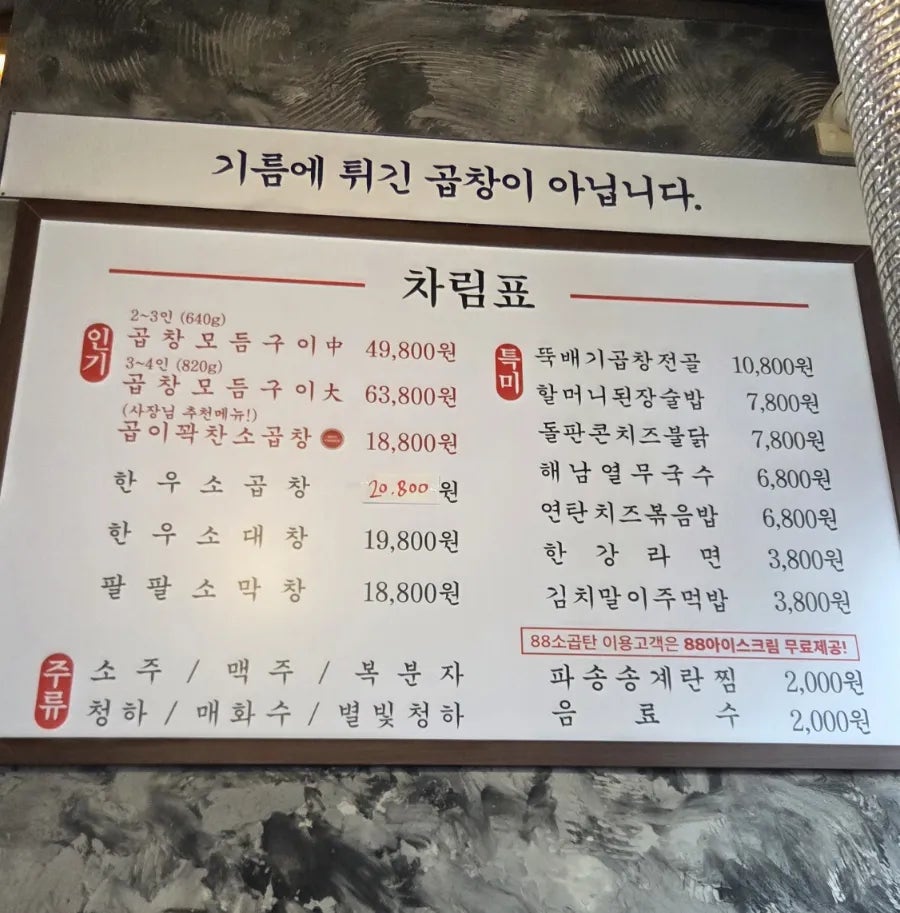 기름에 튀긴 곱창이 아닙니다.
차림표
인기
2~3인 (640g)
곱창모듬구이中 49,800원
3~4인 (820g)
곱창모듬구이大 63,800원
(사장님 추천메뉴!)
곱이꽉찬소곱창 18,800원
한우소곱창 20.800원
한우소대창 19,800원
팔팔소막창 18,800원
특미
뚝배기곱창전골 10,800원
할머니된장술밥 7,800원
돌판콘치즈불닭 7,800원
해남열무국수 6,800원
연탄치즈볶음밥 6,800원
한강라면 3,800원
김치말이주먹밥 3,800원
88소곱탄 이용고객은 88아이스크림 무료제공!
파송송계란찜 2,000원
음료수 2,000원
주류
소주 / 맥주 / 복분자
청하 / 매화수 / 별빛청하